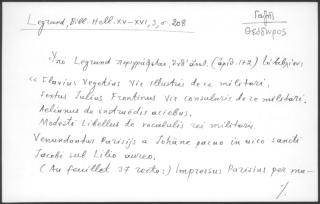 Legrand, Bibl. Hell. XV-XVI, 3, σ. 208
Γαζῆς
Θεόδωρος
Ὑπὸ Legrand περιγράφεται, (ἀριθ. 172)
"Flavius Vegetius Vir illustris de re militari.
Sextus Julius Frontinus Vir consularis de re militari.
Aelianus de instruēdis aciebus.
Modesti Libellus de vocabulis rei militaris.
Venundantur Parisijs a Johāne paruo in uico sancti
Jacobi sub Lilio aureo.
(Au feuillet 37 recto:) Impressus Parisius per ma-
%.